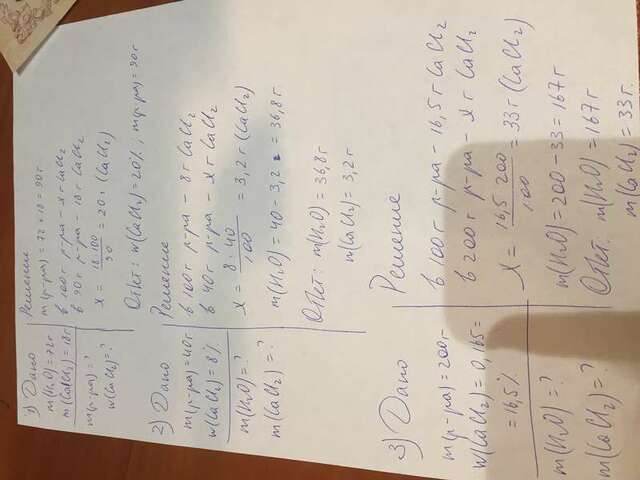 1) Дано
m(H₂O)=72г
m(CaCl₂)=18г
m(р-ра)=?
w(CaCl₂)=?
Решение
m(р-ра)=72+18=90г
в 100г р-ра - xг CaCl₂
в 90г р-ра - 18г CaCl₂
x = 18·100/90 = 20г (CaCl₂)
Ответ: w(CaCl₂)=20%; m(р-ра)=90г
2) Дано
m(р-ра)=40г
w(CaCl₂)=8%
m(H₂O)=?
m(CaCl₂)=?
Решение
в 100г р-ра - 8г CaCl₂
в 40г р-ра - xг CaCl₂
x = 8·40/100 = 3,2г (CaCl₂)
m(H₂O)=40-3,2=36,8г.
Ответ: m(H₂O)=36,8г
m(CaCl₂)=3,2г
3) Дано
m(р-ра)=200г
w(CaCl₂)=0,165=
=16,5%
m(H₂O)=?
m(CaCl₂)=?
Решение
в 100г р-ра - 16,5г CaCl₂
в 200г р-ра - xг CaCl₂
X = 16,5·200/100 = 33г (CaCl₂)
m(H₂O)=200-33=167г
Ответ: m(H₂O)=167г
m(CaCl₂)=33г.